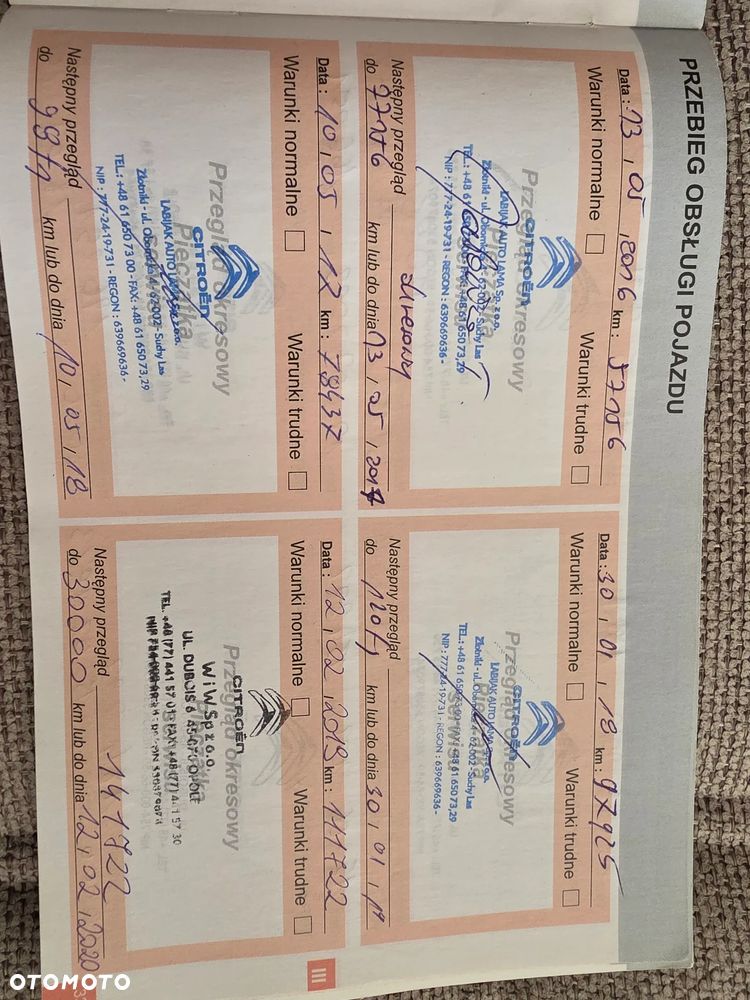 PRZEBIEG OBSŁUGI POJAZDU
Data : 13 , 05 , 2016 km : 57156
Warunki normalne Warunki trudne
Przegląd okresowy
CITROËN
LABIJAK AUTO JAMA Sp. z o.o.
Złotniki - ul. Obornicka 4 - 62-002 - Suchy Las
NIP : 777-24-19-731 - REGON : 639669636 -
Następny przegląd
do 77156 km lub do dnia 13 , 05 , 2017
Data : 30 , 01 , 18 km : 97925
Warunki normalne Warunki trudne
Przegląd okresowy
CITROËN
LABIJAK AUTO JAMA Sp. z o.o.
Złotniki - ul. Obornicka 4 - 62-002 - Suchy Las
NIP : 777-24-19-731 - REGON : 639669636 -
Następny przegląd
do km lub do dnia 30 , 01 , 19
Data : 10 , 05 , 17 km : 78437
Warunki normalne Warunki trudne
Przegląd okresowy
Pieczątka
CITROËN
LABIJAK AUTO JAMA Sp. z o.o.
Złotniki - ul. Obornicka 4 - 62-002 - Suchy Las
TEL.: +48 61 650 73 00 - FAX: +48 61 650 73,29
NIP : 777-24-19-731 - REGON : 639669636 -
Następny przegląd
do km lub do dnia 10 , 05 , 18
Data : 12 , 02 , 2019 km : 111722
Warunki normalne Warunki trudne
Przegląd okresowy
CITROËN
W i W Sp. z o.o.
UL. DUBOIS 6 45-070 OPOLE
TEL. +48 (77) 441 57 01 FAX: +48 (77) 441 57 30
Następny przegląd 141722
do 30000 km lub do dnia 12 , 02 , 2020
III
OTOMOTO